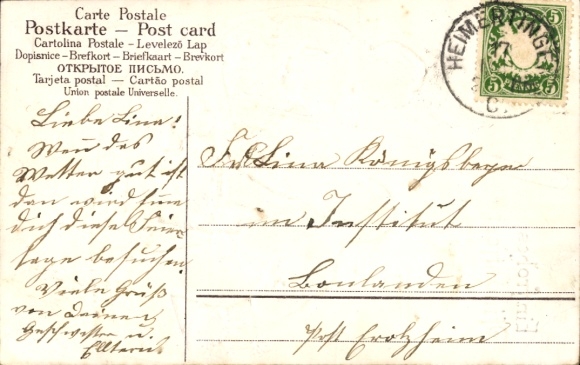 Carte Postale
Postkarte – Post card
Cartolina Postale – Levelező Lap
Dopisnice – Brefkort – Briefkaart – Brevkort
ОТКРЫТОЕ ПИСЬМО.
Tarjeta postal – Cartão postal
Union postale Universelle.
HEIMERTINGEN
17
C.
5 5
5 5
Liebe Lina!
Wen̄ das
Wetter gut ist
dan wird
dich diese Feier-
tage besuchen.
Viele Grüß
von Deinen
Geschwister u.
Elltern
Frl Lina Königsberger
im Institut
Bonlanden
Post Erolzheim